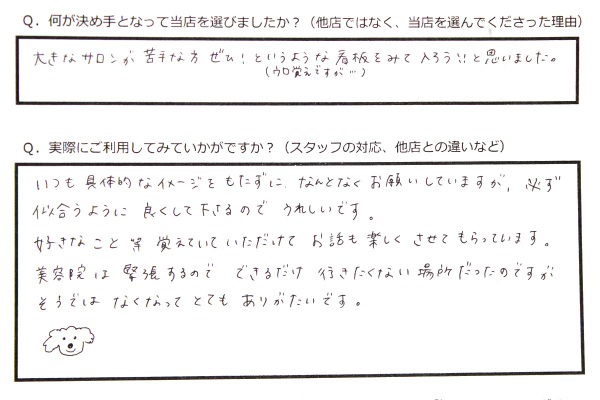 Q. 何が決め手となって当店を選びましたか？（他店ではなく、当店を選んでくださった理由）
大きなサロンが苦手な方ぜひ！というような看板をみて入ろう!!と思いました。
（ウロ覚えですが…）
Q. 実際にご利用してみていかがですか？（スタッフの対応、他店との違いなど）
いつも具体的なイメージをもたずに、なんとなくお願いしていますが、必ず
似合うように良くして下さるのでうれしいです。
好きなこと等覚えていていただけてお話も楽しくさせてもらっています。
美容院は緊張するのでできるだけ行きたくない場所だったのですが
そうではなくなってとてもありがたいです。